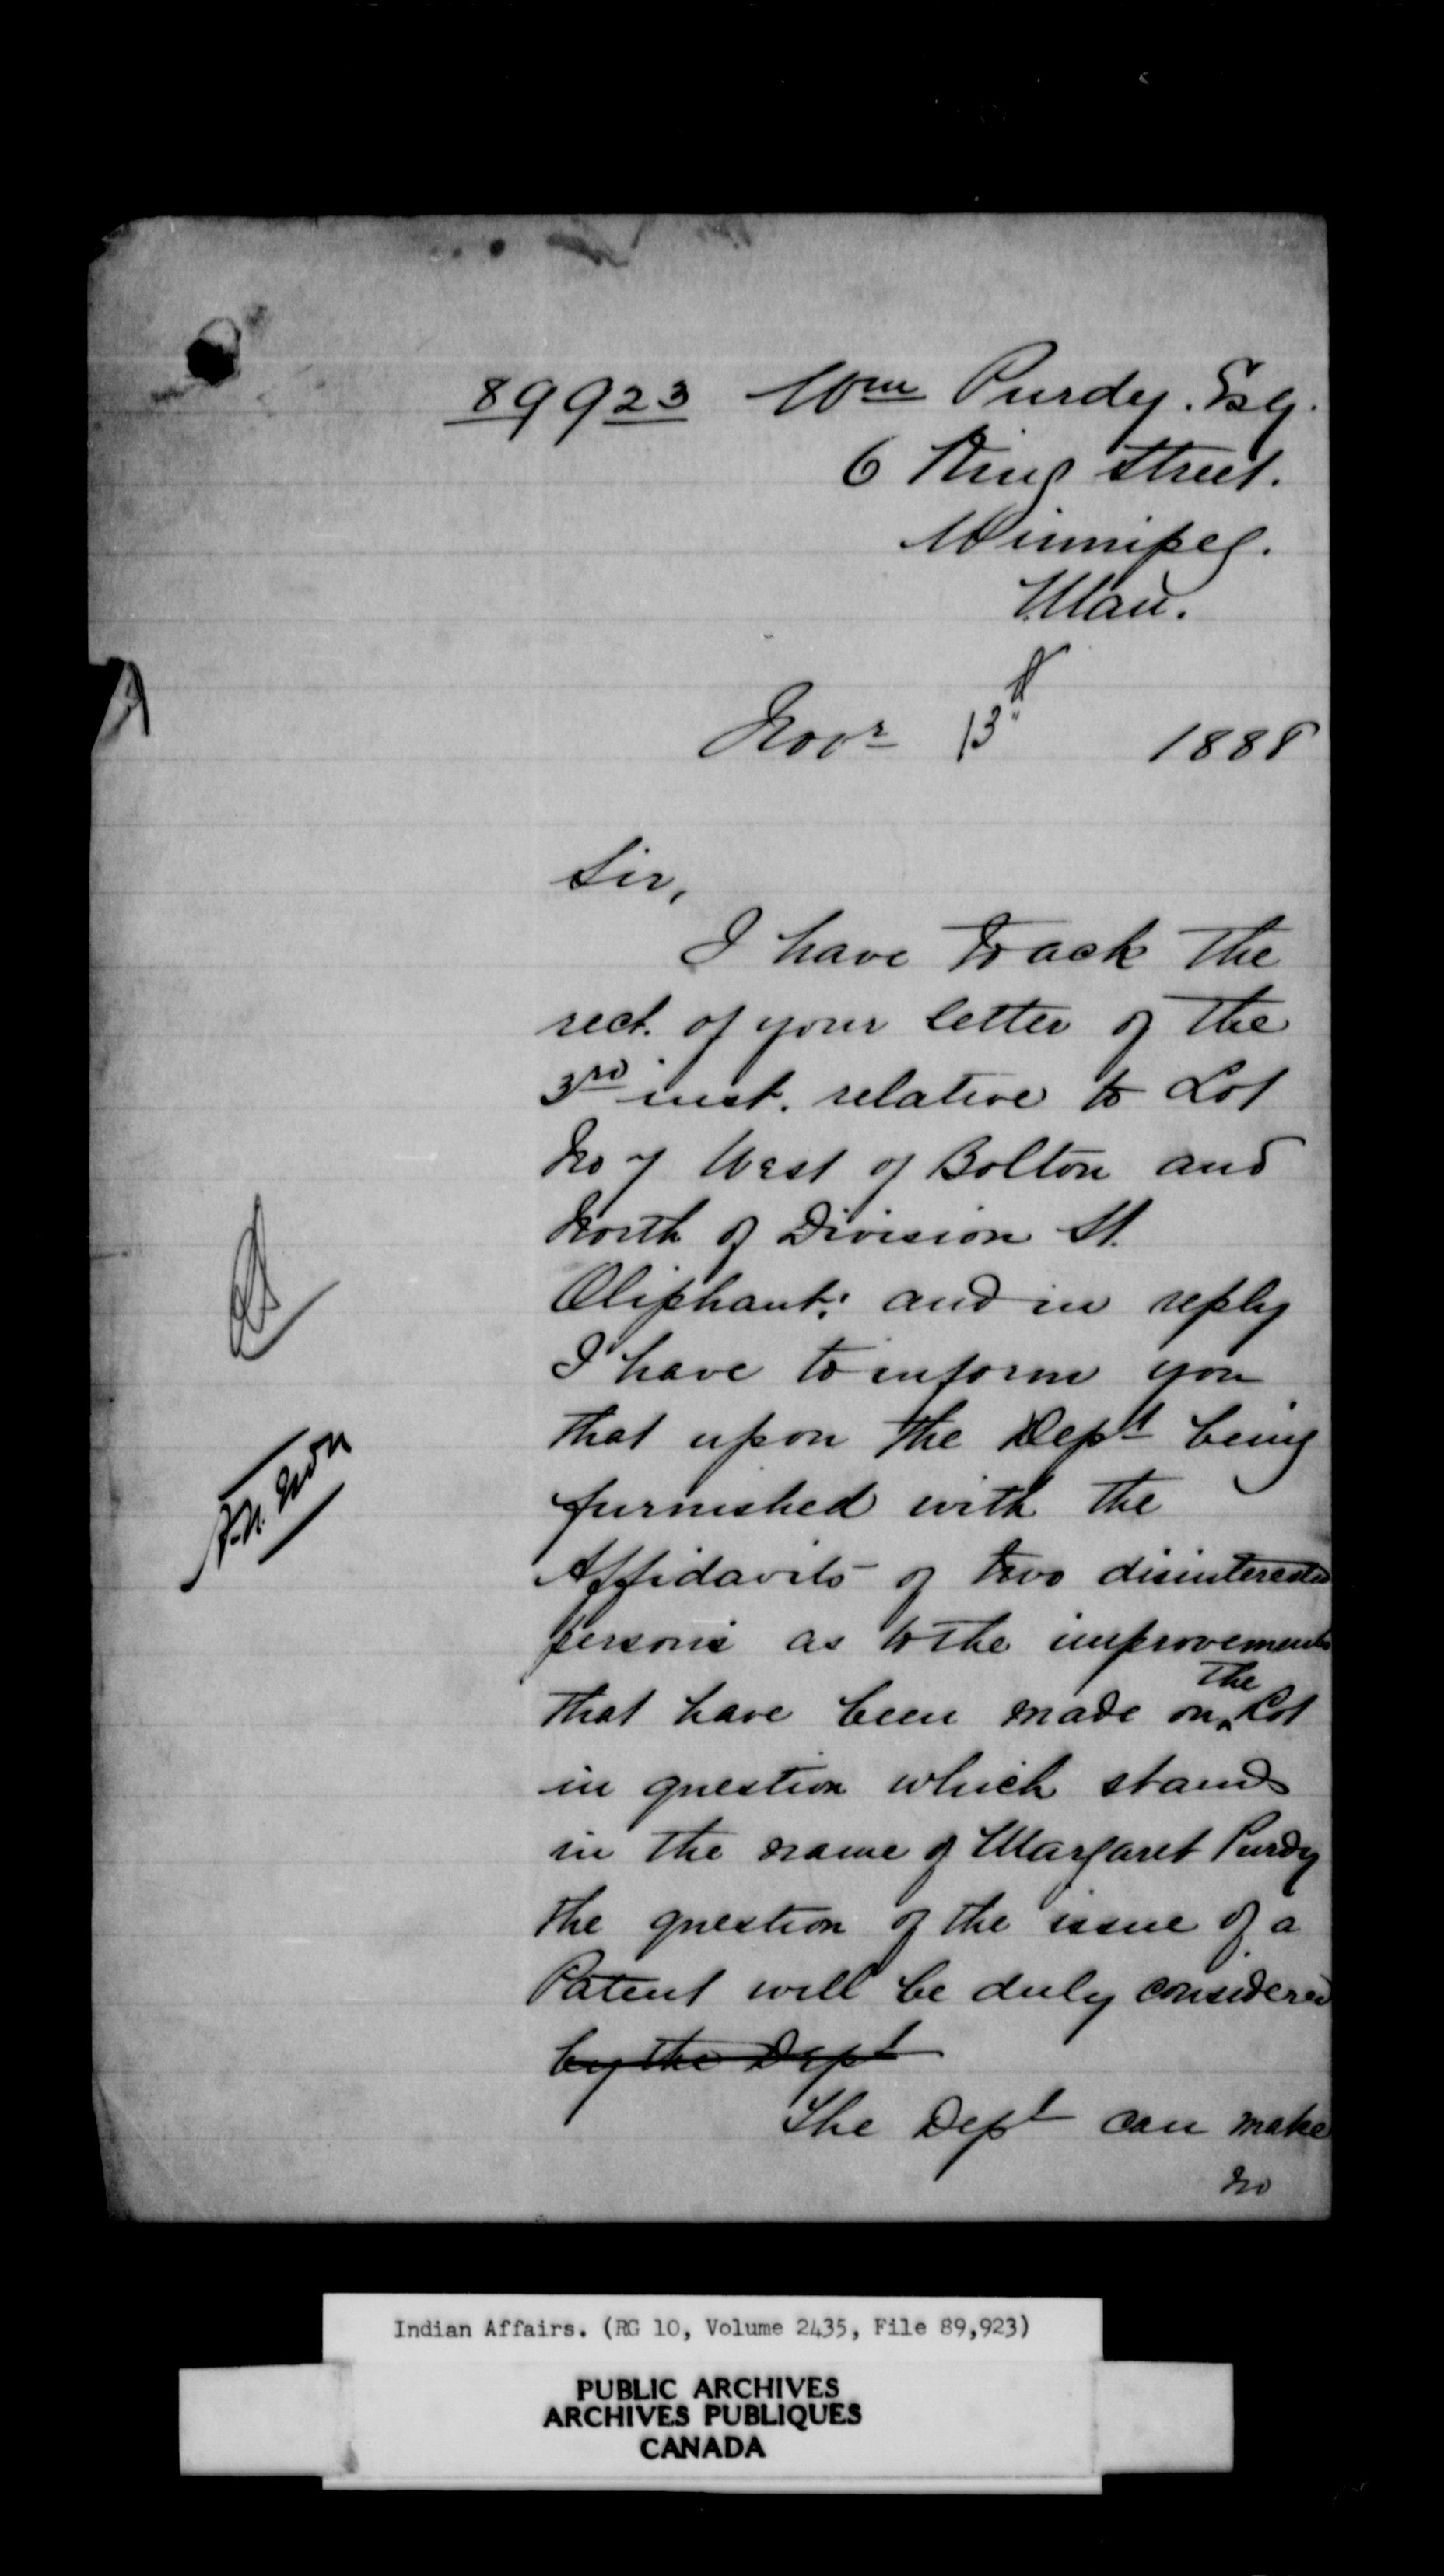 89923 Wm Purdy. Esq.
6 King Street.
Winnipeg.
Man.
Novr 13" 1888
Sir,
I have to ack the
rect. of your letter of the
3rd inst. relative to Lot
No 7 West of Bolton and
North of Division St.
Oliphant; and in reply
I have to inform you
that upon the Dept being
furnished with the
Affidavits of two disinterested
persons as to the improvements
that have been made on the Lot
in question which stands
in the name of Margaret Purdy
the question of the issue of a
Patent will be duly considered
by the Dept
The Dept can make
no
Indian Affairs. (RG 10, Volume 2435, File 89,923)
PUBLIC ARCHIVES
ARCHIVES PUBLIQUES
CANADA